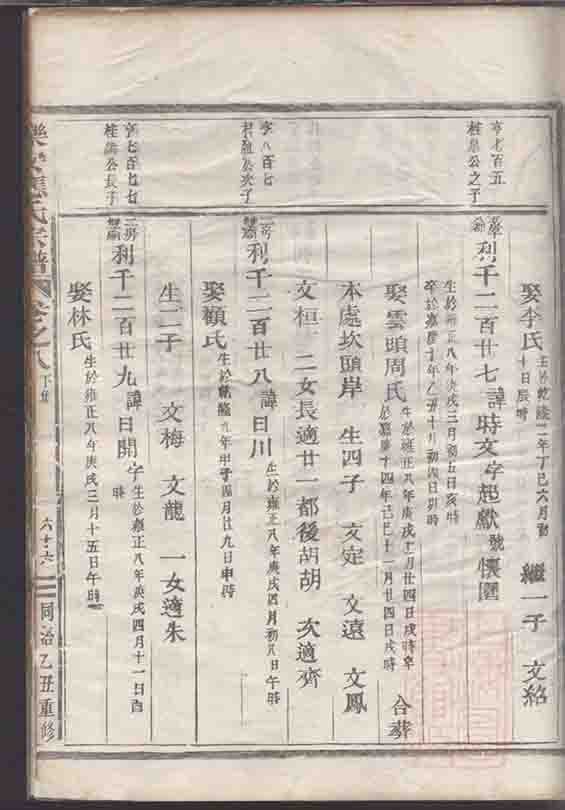 娶李氏 生於乾隆二年丁巳六月初十日辰時 繼一子 文紹
亨七百五
桂泉公之子
利千二百廿七 諱時文 字起獻 號懷園
生於雍正八年庚戌三月初五日亥時
卒於嘉慶十年乙丑十月初四日卯時
娶雲頭周氏 生於雍正八年庚戌十二月廿四日戌時卒於嘉慶十四年己巳十一月廿四日戌時 合葬
本處坎頭岸 生四子 文定 文遠 文鳳
文桓 二女長適廿一都後胡胡 次適齊
亨八百七
公次子
二房
利千二百廿八 諱日川 生於雍正八年庚戌四月初八日午時
娶顧氏 生於乾隆九年甲子四月廿九日申時
生二子 文梅 文龍 一女適朱
亨七百七七
桂 公長子
二房
利千二百廿九 諱日開 字 生於雍正八年庚戌四月十一日酉時
娶林氏 生於雍正八年庚戌三月十五日午時
氏宗譜 卷之八 六十六 同治乙丑重修